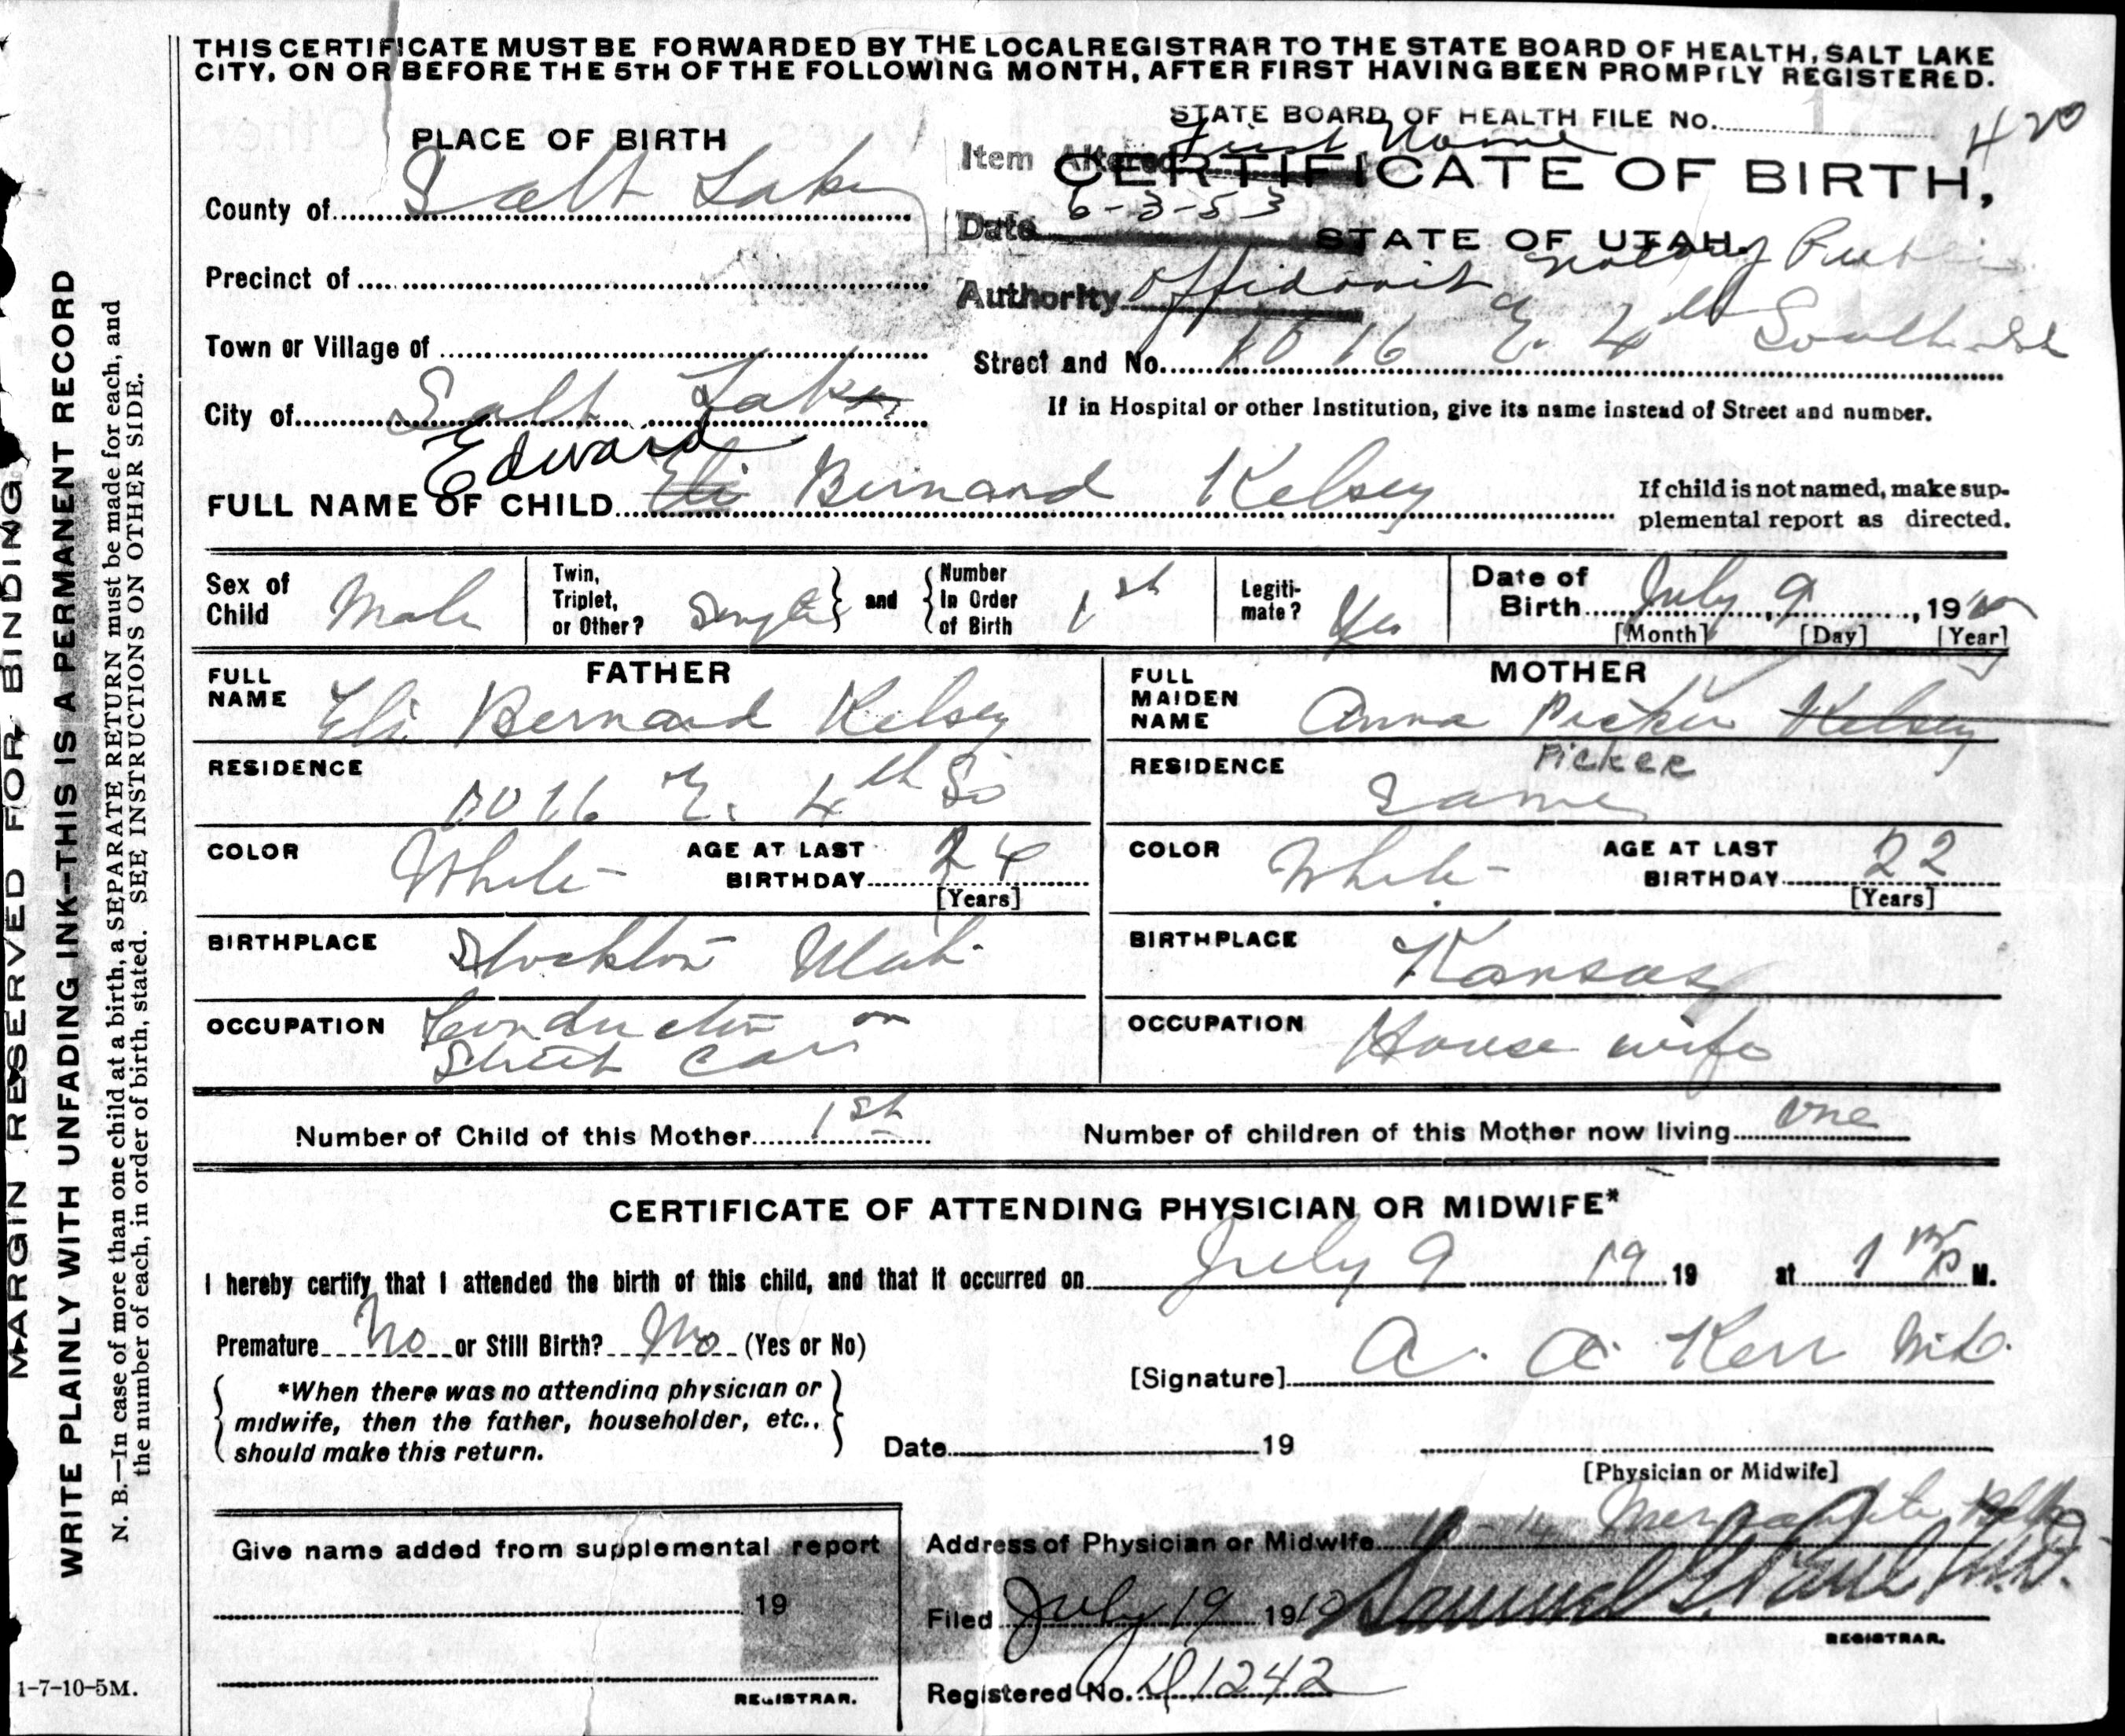 THIS CERTIFICATE MUST BE FORWARDED BY THE LOCAL REGISTRAR TO THE STATE BOARD OF HEALTH, SALT LAKE
CITY, ON OR BEFORE THE 5TH OF THE FOLLOWING MONTH, AFTER FIRST HAVING BEEN PROMPTLY REGISTERED.
STATE BOARD OF HEALTH FILE NO. 420
PLACE OF BIRTH
Item Altered First Name
CERTIFICATE OF BIRTH,
County of Salt Lake
Date 6-3-53
STATE OF UTAH.
Precinct of
Authority Affidavit Notary Public
Town or Village of
Street and No. 1016 E. 4th South St
City of Salt Lake
If in Hospital or other Institution, give its name instead of Street and number.
Edward
FULL NAME OF CHILD Eli Bernard Kelsey
If child is not named, make sup-
plemental report as directed.
Sex of Child Male
Twin, Triplet, or Other? Single and Number In Order of Birth 1st
Legiti-mate? Yes
Date of Birth July 9, 1910
[Month] [Day] [Year]
FATHER
FULL NAME Eli Bernard Kelsey
RESIDENCE 1016 E. 4th So
COLOR White AGE AT LAST BIRTHDAY 24
[Years]
BIRTHPLACE Stockton Utah
OCCUPATION Conductor on
Street Car
MOTHER
FULL MAIDEN NAME Anna Picker Kelsey
Picker
RESIDENCE Same
COLOR White AGE AT LAST BIRTHDAY 22
[Years]
BIRTHPLACE Kansas
OCCUPATION House wife
Number of Child of this Mother 1st Number of children of this Mother now living one
CERTIFICATE OF ATTENDING PHYSICIAN OR MIDWIFE*
I hereby certify that I attended the birth of this child, and that it occurred on July 9 19 19 at 1 P M.
Premature No or Still Birth? No (Yes or No)
[Signature] A. A. Kerr M.D.
*When there was no attending physician or
midwife, then the father, householder, etc.,
should make this return.
Date 19
[Physician or Midwife]
Give name added from supplemental report
19
REGISTRAR.
Address of Physician or Midwife
Filed July 19 1910 Samuel G. Paul M.D.
REGISTRAR.
Registered No. D1242
MARGIN RESERVED FOR BINDING
WRITE PLAINLY WITH UNFADING INK—THIS IS A PERMANENT RECORD
N. B.—In case of more than one child at a birth, a SEPARATE RETURN must be made for each, and
the number of each, in order of birth, stated. SEE INSTRUCTIONS ON OTHER SIDE.
1-7-10-5M.